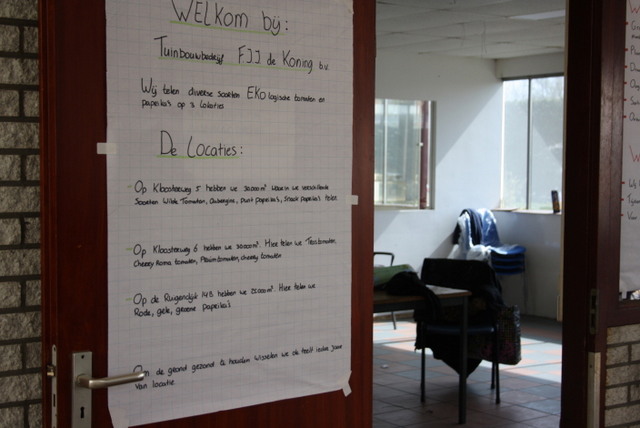 WELKOM bij:
Tuinbouwbedrijf FJJ de Koning b.v.
Wij telen diverse soorten EKOlogische tomaten en
paprika's op 3 lokaties
De Locaties:
- Op Kloosterweg 5 hebben we 30.000m² waarin we verschillende
Soorten Wilde Tomaten, Aubergine, punt paprika's, Snack paprika's telen
- Op Kloosterweg 6 hebben we 30.000m². Hier telen we Trostomaten,
Cherry Roma tomaten, Pruimtomaten, cherry tomaten
- Op de Rugendijk 14B hebben we m². Hier telen we
Rode, gele, groene paprika's
Om de grond gezond te houden wisselen we de teelt ieder jaar
van locatie.